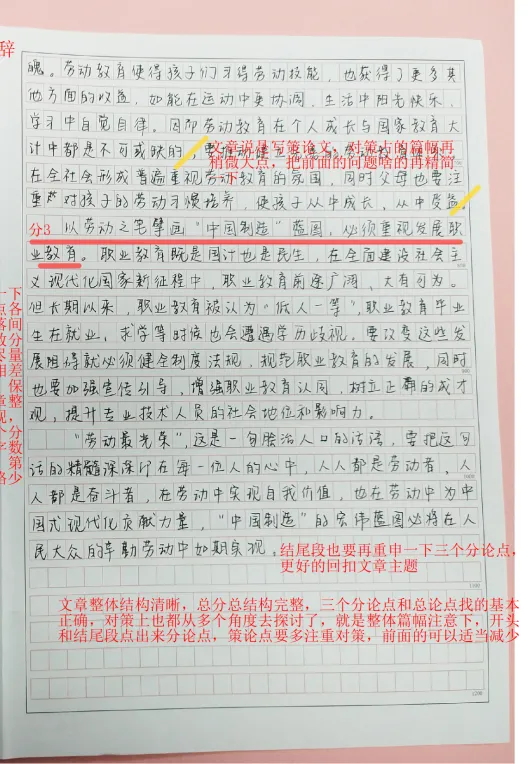 辞
魄。劳动教育使得孩子们习得劳动技能，也获得了更多其
他方面的收益，如能在运动中更协调，生活中阳光快乐，
学习中自觉自律。因而劳动教育在个人成长与国家教育大
计中都是不可或缺的，要
文章说是写策论文，对策方的篇幅再
稍微大点，把前面的问题啥的再精简
一下
在全社会形成普遍重视劳动教育的氛围，同时父母也要注
重对孩子的劳动习惯培养，使孩子从中成长，从中受益。
分3 以劳动之笔擘画“中国制造”蓝图，必须重视发展职
业教育。职业教育既是国计也是民生，在全面建设社会主
义现代化国家新征程中，职业教育前途广阔，大有可为。
但长期以来，职业教育被认为“低人一等”，职业教育毕业
生在就业、求学等时候也会遭遇学历歧视。要改变这些发
展阻碍就必须健全制度法规，规范职业教育的发展，同时
也要加强宣传引导，增强职业教育认同，树立正确的成才
观，提升专业技术人员的社会地位和影响力。
“劳动最光荣”，这是一句脍炙人口的话语，要把这句
话的精髓深深印在每一位人的心中，人人都是劳动者，人
人都是奋斗者，在劳动中实现自我价值，也在劳动中为中
国式现代化贡献力量，“中国制造”的宏伟蓝图必将在人
民大众的辛勤劳动中如期实现。
结尾段也要再重申一下三个分论点，
更好的回扣文章主题
1100
文章整体结构清晰，总分总结构完整，三个分论点和总论点找的基本
正确，对策上也都从多个角度去探讨了，就是整体篇幅注意下，开头
和结尾段点出来分论点，策论点要多注重对策，前面的可以适当减少
1200